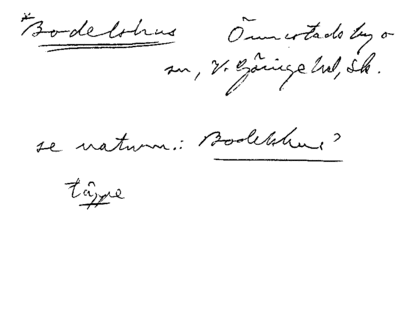 *Bodelshus Önnestads by o
sn, V. Göinge hd, Sk.
se naturn.: Bodelshus
täppe